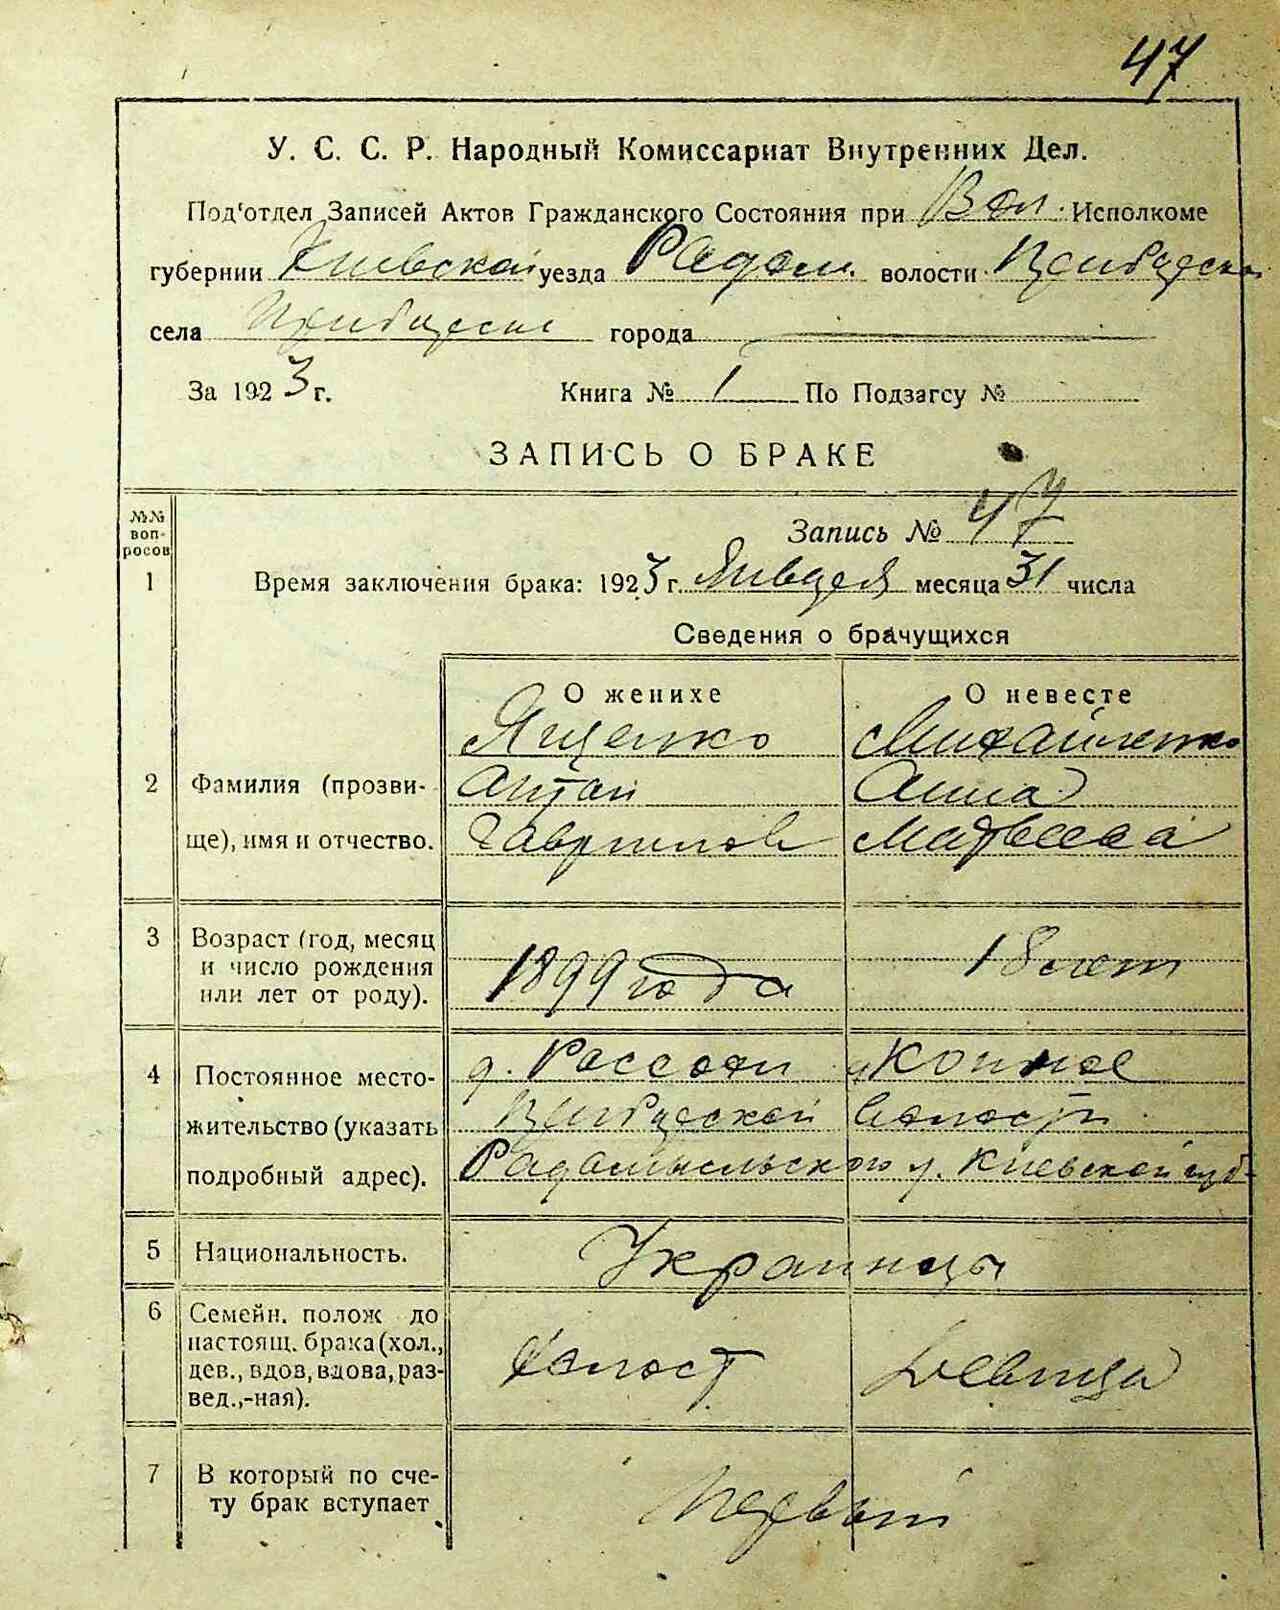 47
У. С. С. Р. Народный Комиссариат Внутренних Дел.
Под'отдел Записей Актов Гражданского Состояния при Вол. Исполкоме
губернии Киевской уезда Радом. волости
села города
За 1923 г. Книга № 1 По Подзагсу №
ЗАПИСЬ О БРАКЕ
№№ воп- росов
Запись № 47
1 Время заключения брака: 1923 г. Января месяца 31 числа
Сведения о брачущихся
О женихе О невесте
Ященко Михайленко
2 Фамилия (прозви- Антон Анна
ще), имя и отчество. Гаврилов Матвеева
3 Возраст (год, месяц
и число рождения 1899 года 18 лет
или лет от роду).
4 Постоянное место- д. Рассохи
жительство (указать волости
подробный адрес). Радомысльского у. Киевской губ.
5 Национальность. Украинцы
6 Семейн. полож до
настоящ. брака (хол., холост Девица
дев., вдов, вдова, раз-
вед.,-ная).
7 В который по сче- Первый
ту брак вступает